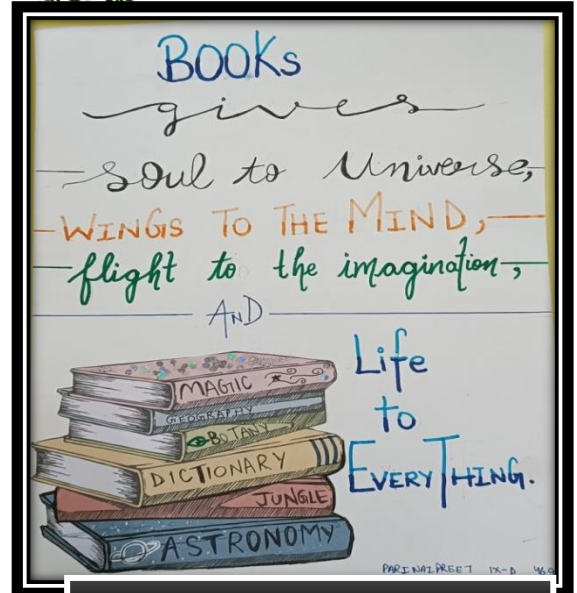 BOOKs
gives
soul to Universe,
WINGS TO THE MIND,
flight to the imagination,
AND
Life
to
EVERYTHING.
MAGIC
GEOGRAPHY
BOTANY
DICTIONARY
JUNGLE
ASTRONOMY
PARINAZPREET IX-D